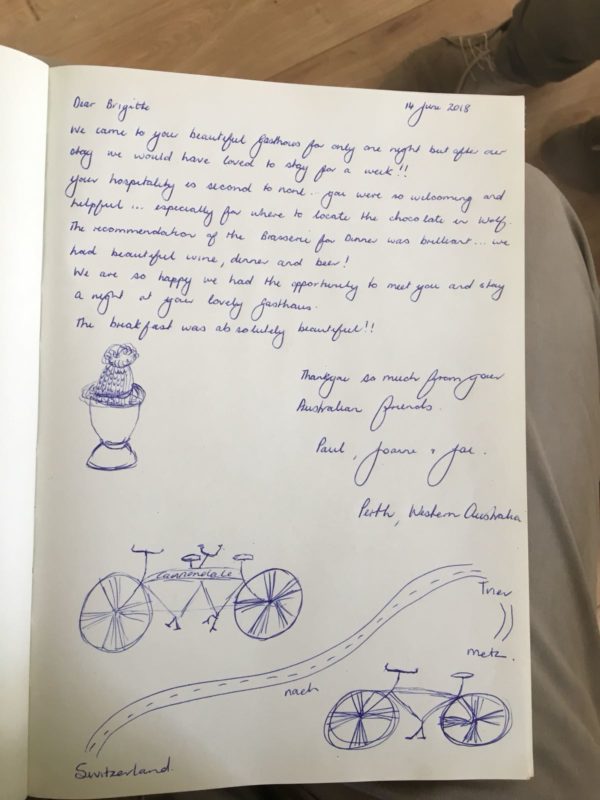 Dear Brigitte 14 June 2018
We came to your beautiful Gasthaus for only one night but after our
stay we would have loved to stay for a week!!
your hospitality is second to none... you were so welcoming and
helpful... especially for where to locate the chocolate in Wolf.
The recommendation of the Brasserie for Dinner was brilliant... we
had beautiful wine, dinner and beer!
We are so happy we had the opportunity to meet you and stay
a night at your lovely Gasthaus.
The breakfast was absolutely beautiful!!
Thankyou so much from your
Australian friends.
Paul, Joanne &
Perth, Western Australia
Cannondale
Trier
metz.
nach
Switzerland.